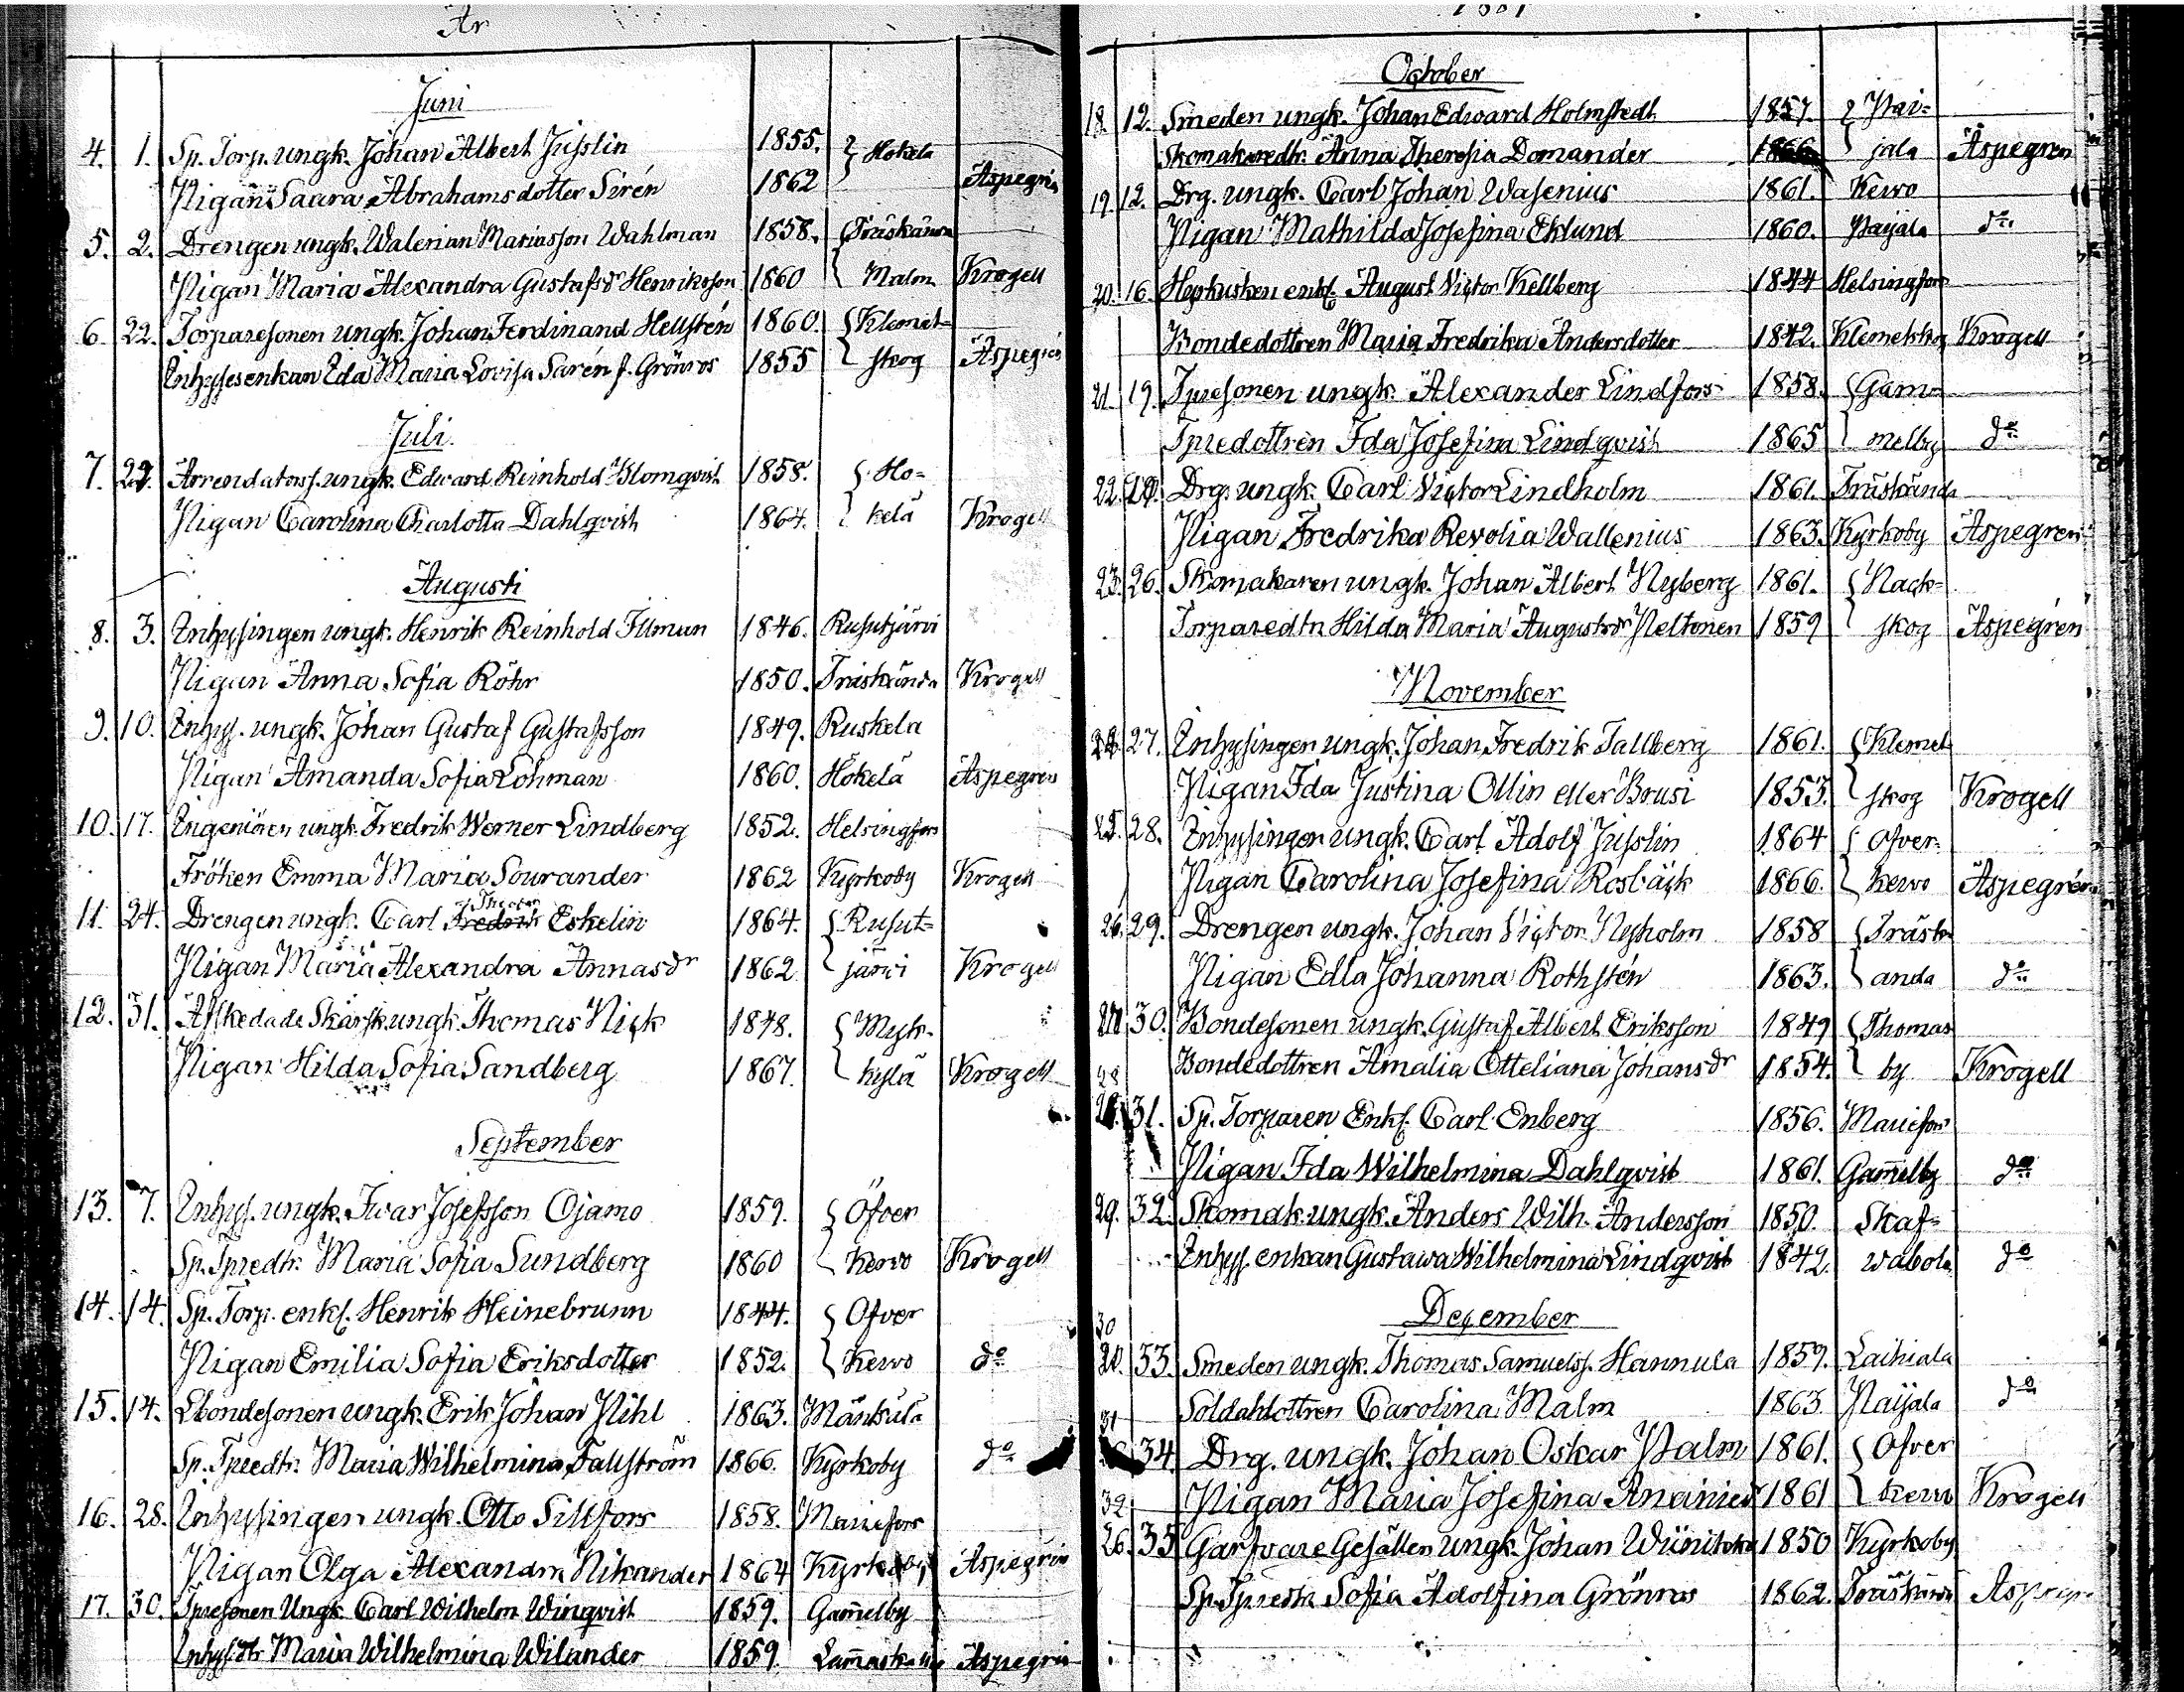 År
Juni
4. 1. Sp. Torp. ungk. Johan Albert Jusslin 1855. Hokela
Pigan Saara Abrahamsdotter Sirén 1862 Aspegrén
5. 2. Drengen ungk. Walerian Mariasson Wahlman 1858. Träskända
Pigan Maria Alexandra Gustafsdr Henriksson 1860 Malm Krogell
6. 22. Torparesonen ungk. Johan Ferdinand Hellstén 1860. Klemet-
Inhysesenkan Eda Maria Lovisa Sarén f. Grönros 1855 skog Aspegrén
Juli.
7. 29. Arrendators s. ungk. Edward Reinhold Blomqvist 1858. Ho-
Pigan Carolina Charlotta Dahlqvist 1864. kela Krogell
Augusti
8. 3. Inhysingen ungk. Henrik Reinhold Illman 1846. Rusutjärvi
Pigan Anna Sofia Röhr 1850. Träskända Krogell
9. 10. Inhys. ungk. Johan Gustaf Gustafsson 1849. Ruskela
Pigan Amanda Sofia Lohman 1860. Hokela Aspegrén
10. 17. Ingeniören ungk. Fredrik Werner Lindberg 1852. Helsingfors
Fröken Emma Maria Sourander 1862 Kyrkoby Krogell
11. 24. Drengen ungk. Carl Fredrik Eskelin 1864. Rusut-
Pigan Maria Alexandra Annasdr 1862 järvi Krogell
12. 31. Afskedade Skarpsk. ungk. Thomas Nick 1848. Myk-
Pigan Hilda Sofia Sandberg 1867. kylä Krogell
September
13. 7. Inhys. ungk. Iwar Josefsson Ojamo 1859. Öfver
Sp. Tpredtr. Maria Sofia Sundberg 1860 Kervo Krogell
14. 14. Sp. Torp. enkl. Henrik Heinebrunn 1844. Öfver
Pigan Emilia Sofia Eriksdotter 1852. Kervo do
15. 14. Lbondesonen ungk. Erik Johan Pihl 1863. Mänkulä
Sp. Tpredtr. Maria Wilhelmina Fallström 1866. Kyrkoby do
16. 28. Inhysingen ungk. Otto Sillfors 1858. Mariefors
Pigan Olga Alexandra Nikander 1864 Kyrkoby Aspegrén
17. 30. Tpresonen Ungk. Carl Wilhelm Winqvist 1859. Gam̄elby
Inhys. dtr Maria Wilhelmina Wilander 1859. Aspegrén
1881
October
18. 12. Smeden ungk. Johan Edward Holmstedt 1857. Pai-
Skomakaredtr. Anna Theresia Domander 1866 jala Aspegrén
19. 12. Drg. ungk. Carl Johan Wasenius 1861. Kervo
Pigan Mathilda Josefina Eklund 1860. Paijala do
20. 16. Hyrkusken enkl. August Victor Kellberg 1844 Helsingfors
Bondedottren Maria Fredrika Andersdotter 1842. Klemetskog Krogell
21. 19. Tpresonen ungk. Alexander Lindfors 1858. Gam-
Tpredottren Ida Josefina Lindqvist 1865 melby do
22. Drg. ungk. Carl Victor Lindholm 1861. Träskända
Pigan Fredrika Revolia Wallenius 1863. Kyrkoby Aspegrén
23. 26. Skomakaren ungk. Johan Albert Nyberg 1861. Nack-
Torparedtr Hilda Maria Augustsdr Peltonen 1859 skog Aspegrén
November
27. Inhysingen ungk. Johan Fredrik Tallberg 1861. Klemet
Pigan Ida Justina Ollin eller Brusi 1853. skog Krogell
25. 28. Inhysingen ungk. Carl Adolf Jusslin 1864 Öfver-
Pigan Carolina Josefina Rosbäck 1866. kervo Aspegrén
26. 29. Drengen ungk. Johan Victor Nyholm 1858 Träsk
Pigan Edla Johanna Rothstén 1863. ända do
27. 30. Bondesonen ungk. Gustaf Albert Eriksson 1849 Thomas
Bondedottren Amalia Otteliana Johansdr 1854. by Krogell
28 31. Sp. Torparen Enkl. Carl Enberg 1856. Mariefors
Pigan Ida Wilhelmina Dahlqvist 1861. Gam̄elby do
29. 32. Skomak. ungk. Anders Wilh. Andersson 1850. Skaf-
Inhys. enkan Gustawa Wilhelmina Lindqvist 1842. wabole do
December
30 33. Smeden ungk. Thomas Samuelss. Hannula 1859. Laihiala
Soldatdottren Carolina Malm 1863. Paijala do
31 34. Drg. ungk. Johan Oskar Palm 1861. Öfver
Pigan Maria Josefina Ananiedr 1861 kervo Krogell
32 35 Garfvare Gesällen ungk. Johan 1850 Kyrkoby
Sp. Tpredtr. Sofia Adolfina Grönros 1862. Träskända Aspegrén